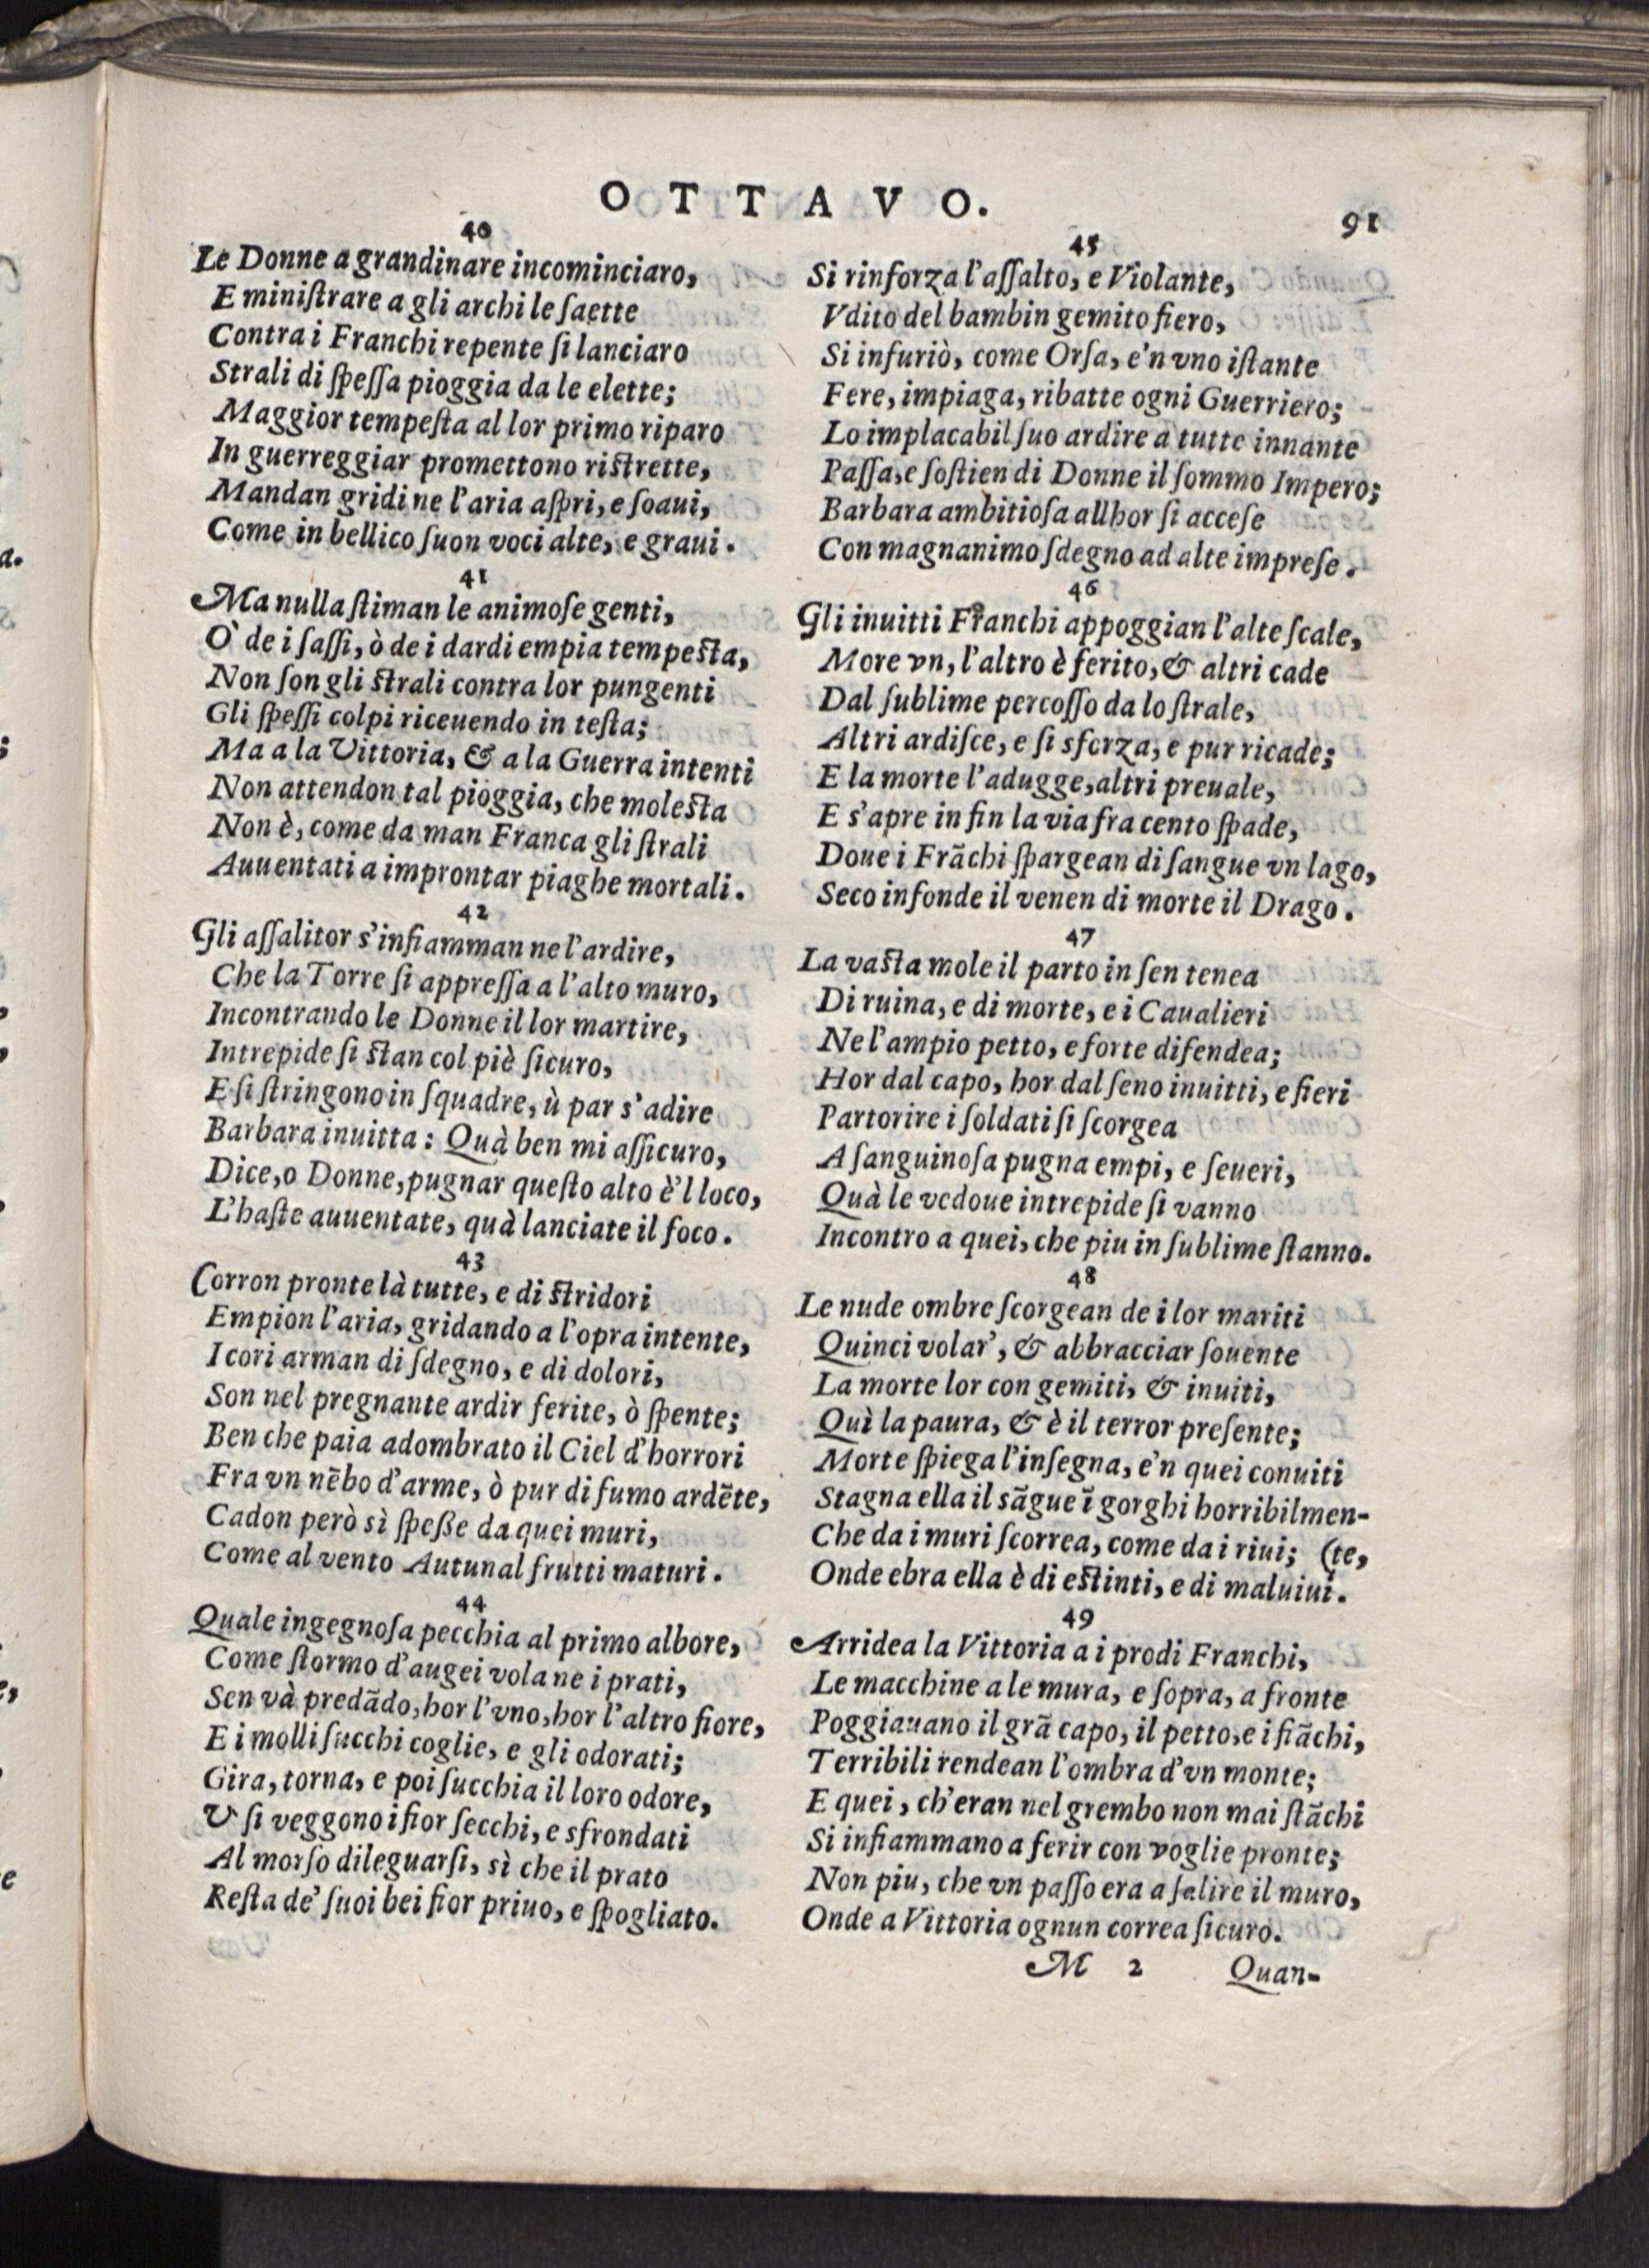 OTTAVO.
91
40
Le Donne a grandinare incominciaro,
E miniſtrare a gli archi le ſaette
Contra i Franchi repente ſi lanciaro
Strali di ſpeſſa pioggia da le elette;
Maggior tempeſta al lor primo riparo
In guerreggiar promettono riſtrette,
Mandan gridi ne l'aria aſpri, e ſoaui,
Come in bellico ſuon voci alte, e graui.
41
Ma nulla ſtiman le animoſe genti,
O' de i ſaſſi, ò de i dardi empia tempeſta,
Non ſon gli ſtrali contra lor pungenti
Gli ſpeſſi colpi riceuendo in teſta;
Ma a la Vittoria, & a la Guerra intenti
Non attendon tal pioggia, che moleſta
Non è, come da man Franca gli ſtrali
Auuentati a improntar piaghe mortali.
42
Gli aſſalitor s'infiamman ne l'ardire,
Che la Torre ſi appreſſa a l'alto muro,
Incontrando le Donne il lor martire,
Intrepide ſi ſtan col piè ſicuro,
E ſi ſtringono in ſquadre, ù par s'adire
Barbara inuitta: Quà ben mi aſſicuro,
Dice, o Donne, pugnar queſto alto è'l loco,
L'haſte auuentate, quà lanciate il foco.
43
Corron pronte là tutte, e di ſtridori
Empion l'aria, gridando a l'opra intente,
I cori arman di ſdegno, e di dolori,
Son nel pregnante ardir ferite, ò ſpente;
Ben che paia adombrato il Ciel d'horrori
Fra vn nēbo d'arme, ò pur di fumo ardēte,
Cadon però sì ſpeſſe da quei muri,
Come al vento Autunal frutti maturi.
44
Quale ingegnoſa pecchia al primo albore,
Come ſtormo d'augei vola ne i prati,
Sen và predādo, hor l'vno, hor l'altro fiore,
E i molli ſucchi coglie, e gli odorati;
Gira, torna, e poi ſucchia il loro odore,
V ſi veggono i fior ſecchi, e sfrondati
Al morſo dileguarſi, sì che il prato
Reſta de' ſuoi bei fior priuo, e ſpogliato.
45
Si rinforza l'aſſalto, e Violante,
Vdito del bambin gemito fiero,
Si infuriò, come Orſa, e'n vno iſtante
Fere, impiaga, ribatte ogni Guerriero;
Lo implacabil ſuo ardire a tutte innante
Paſſa, e ſoſtien di Donne il ſommo Impero;
Barbara ambitioſa allhor ſi acceſe
Con magnanimo ſdegno ad alte impreſe.
46
Gli inuitti Franchi appoggian l'alte ſcale,
More vn, l'altro è ferito, & altri cade
Dal ſublime percoſſo da lo ſtrale,
Altri ardiſce, e ſi sforza, e pur ricade;
E la morte l'adugge, altri preuale,
E s'apre in fin la via fra cento ſpade,
Doue i Frāchi ſpargean di ſangue vn lago,
Seco infonde il venen di morte il Drago.
47
La vaſta mole il parto in ſen tenea
Di ruina, e di morte, e i Caualieri
Ne l'ampio petto, e forte difendea;
Hor dal capo, hor dal ſeno inuitti, e fieri
Partorire i ſoldati ſi ſcorgea
A ſanguinoſa pugna empi, e ſeueri,
Quà le vedoue intrepide ſi vanno
Incontro a quei, che piu in ſublime ſtanno.
48
Le nude ombre ſcorgean de i lor mariti
Quinci volar', & abbracciar ſouente
La morte lor con gemiti, & inuiti,
Quì la paura, & è il terror preſente;
Morte ſpiega l'inſegna, e'n quei conuiti
Stagna ella il sāgue ī gorghi horribilmen-
Che da i muri ſcorrea, come da i riui; (te,
Onde ebra ella è di eſtinti, e di maluiui.
49
Arridea la Vittoria a i prodi Franchi,
Le macchine a le mura, e ſopra, a fronte
Poggiauano il grā capo, il petto, e i fiāchi,
Terribili rendean l'ombra d'vn monte;
E quei, ch'eran nel grembo non mai ſtāchi
Si infiammano a ferir con voglie pronte;
Non piu, che vn paſſo era a ſalire il muro,
Onde a Vittoria ognun correa ſicuro.
M 2 Quan-